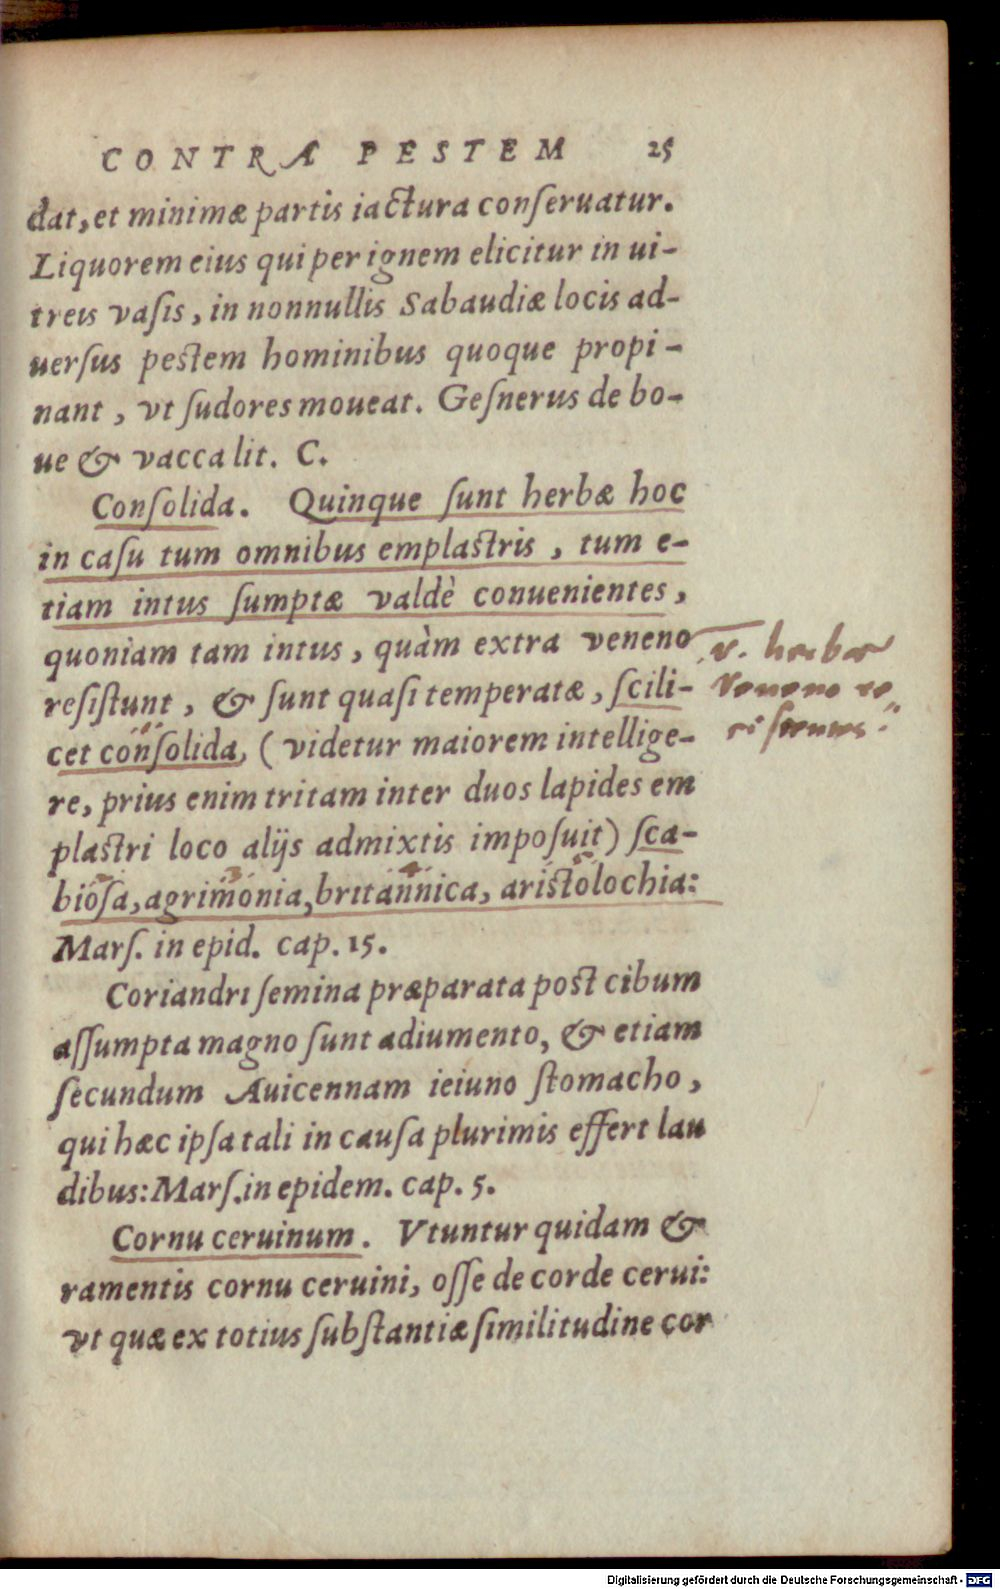 CONTRA PESTEM 25
dat, et minimæ partis iactura conſeruatur.
Liquorem eius qui per ignem elicitur in ui-
treis vaſis, in nonnullis Sabaudiæ locis ad-
uerſus pestem hominibus quoque propi-
nant, vt ſudores moueat. Geſnerus de bo-
ue & vacca lit. C.
Conſolida. Quinque ſunt herbæ hoc
in caſu tum omnibus emplaſtris, tum e-
tiam intus ſumptæ valdè conuenientes,
quoniam tam intus, quàm extra veneno
reſiſtunt, & ſunt quaſi temperatæ, ſcili-
cet conſolida, (videtur maiorem intellige-
re, prius enim tritam inter duos lapides em
plaſtri loco alijs admixtis impoſuit) ſca-
bioſa, agrimonia, britannica, ariſtolochia:
Marſ. in epid. cap. 15.
v. herbæ
veneno re
ſiſtentes.
Coriandri ſemina præparata poſt cibum
aſſumpta magno ſunt adiumento, & etiam
ſecundum Auicennam ieiuno ſtomacho,
qui hæc ipſa tali in cauſa plurimis effert lau
dibus: Marſ. in epidem. cap. 5.
Cornu ceruinum. Vtuntur quidam &
ramentis cornu ceruini, oſſe de corde cerui:
vt quæ ex totius ſubſtantiæ ſimilitudine cor
Digitalisierung gefördert durch die Deutsche Forschungsgemeinschaft - DFG